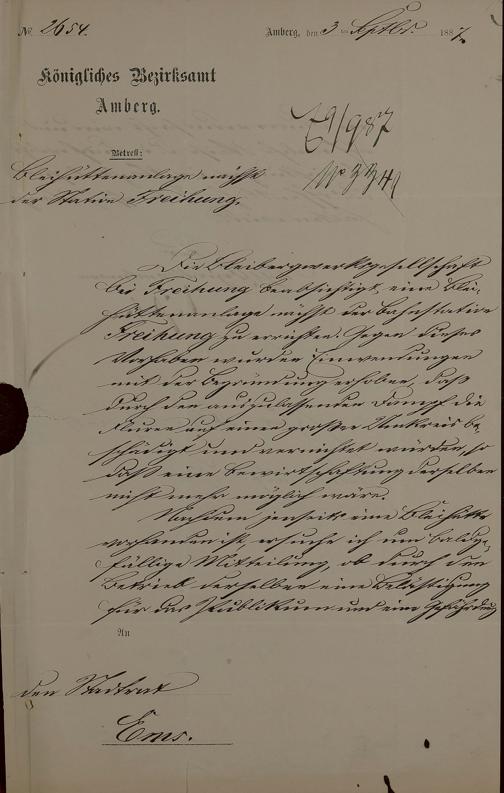 No 2654.
Amberg, den 3ten Septbr. 1887.
Königliches Bezirksamt
Amberg.
E 9/9 87
No 3341
Betreff:
Bleihüttenanlage nächst
der Station Freihung.
Die Bleibergwerksgesellschaft
bei Freihung beabsichtigt eine Blei-
hüttenanlage nächst der Bahnstation
Freihung zu errichten. Gegen dieses
Vorhaben wurden Einwendungen
mit der Begründung erhoben, daß
durch den auszulassenden Dampf die
Fluren auf einen großen Umkreis be-
schädigt und vernichtet würden, so
daß eine Bewirtschaftung derselben
nicht mehr möglich wäre.
Nachdem jenseits eine Bleihütte
vorhanden ist, ersuche ich um baldge-
fällige Mitteilung, ob durch den
Betrieb derselben eine Belästigung
für das Publikum und eine Gefährdung
An
den Stadtrat
Ems.